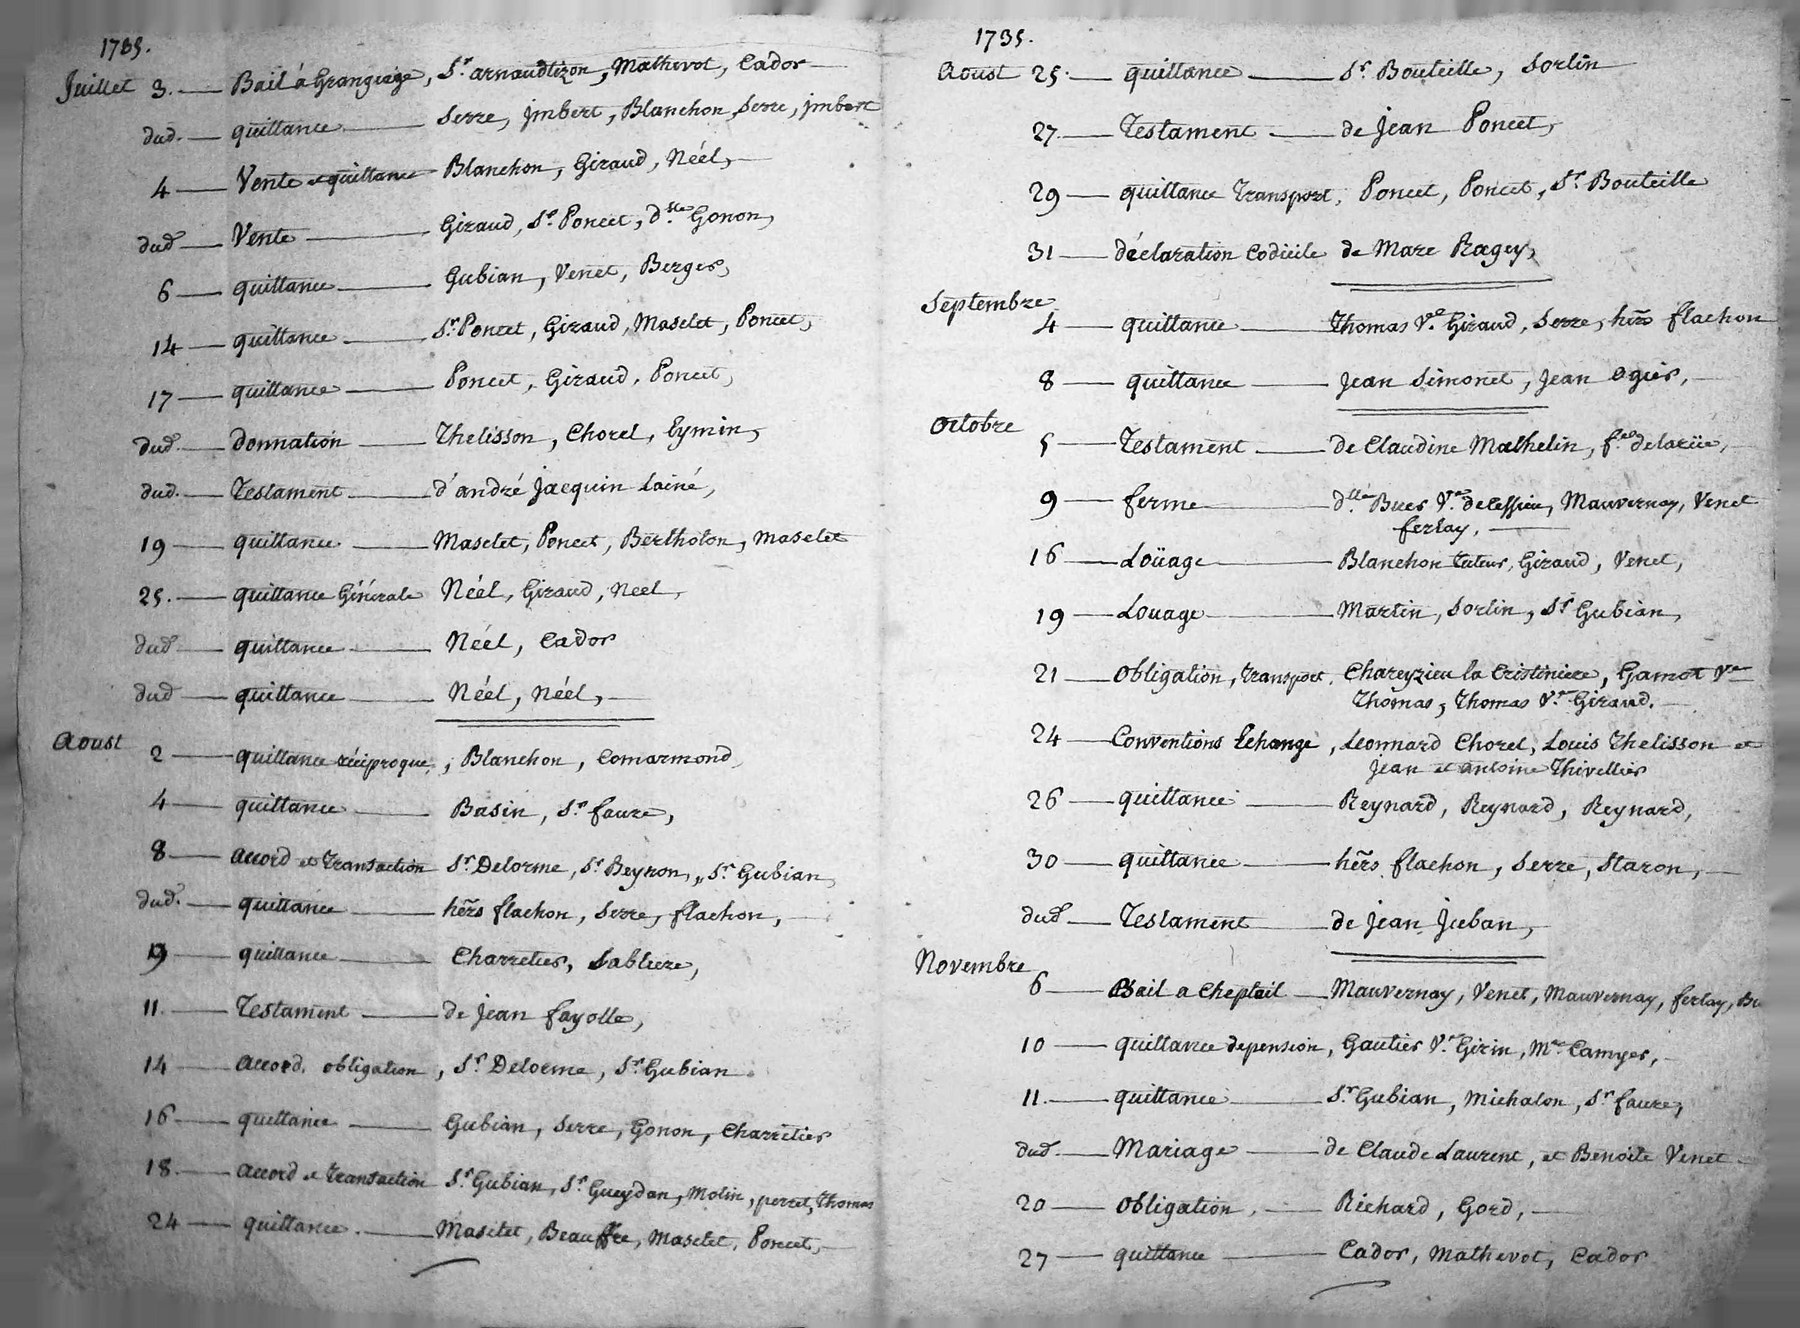 1735.
Juillet 3. Bail à Grangeage, Sr. arnaudtizon, Mathevot, Cador
dud. quittance Serre, jmbert, Blanchon, Serre, jmbert
4 Vente et quittance Blanchon, Giraud, Néél,
dud. Vente Giraud, Sr. Poncet, dlle Gonon,
6 quittance Gubian, Venet, Berger,
14 quittance Sr. Poncet, Giraud, Maselet, Poncet,
17 quittance Poncet, Giraud, Poncet,
dud. donnation Thelisson, Chorel, Eymin,
dud. Testament d'andré Jacquin Lainé,
19 quittance Maselet, Poncet, Bertholon, Maselet
25. quittance Générale Néél, Giraud, Neel,
dud. quittance Néél, Cador
dud quittance Néél, Néél,
Aoust
2 quittance réciproque, Blanchon, Comarmond,
4 quittance Basin, Sr. faure,
8 accord et Transaction Sr. Delorme, Sr. Beyron, Sr. Gubian,
dud. quittance hers flachon, Serre, flachon,
9 quittance Charretier, Sabliere,
11. Testament de Jean fayolle,
14 accord, obligation, Sr. Delorme, Sr. Gubian.
16 quittance Gubian, Serre, Gonon, Charretier
18. accord et Transaction Sr. Gubian, Sr. Gueydan, Molin, perret, Thomas
24 quittance. Maselet, Beauffre, Maselet, Poncet,
1735.
Aoust 25. quittance Sr. Bouteille, Sorlin
27. Testament de Jean Poncet,
29 quittance Transport, Poncet, Poncet, Sr. Bouteille
31 déclaration Codicile de Marc Ragey,
Septembre
4 quittance Thomas Ve. Giraud, Serre, hers flachon
8 quittance Jean Simonet, Jean Ogier,
Octobre
5 Testament de Claudine Mathelin, fe. delarüe,
9 ferme dlle. Buer Ve. delessieu, Mauvernay, Venet
ferlay,
16 Loüage Blanchon tuteur, Giraud, Venet,
19 Louage Martin, Sorlin, Sr. Gubian,
21 obligation, transport, Chareyzieu la Cristiniere, Gamot Ve
Thomas, Thomas Ve. Giraud.
24 Conventions Echange, Leonnard Chorel, Louis Thelisson et
Jean et antoine Thivellier
26 quittance Reynard, Reynard, Reynard,
30 quittance hers flachon, Serre, Staron,
dud. Testament de Jean Juban,
Novembre
6 Bail a Cheptail Mauvernay, Venet, Mauvernay, ferlay, Bu
10 quittance depension, Gautier Ve. Girin, Mr. Camyer,
11. quittance Sr. Gubian, Michalon, Sr. faure,
dud. Mariage de Claude Laurent, et Benoite Venet
20 obligation, Richard, Gord,
27 quittance Cador, Mathevot, Cador